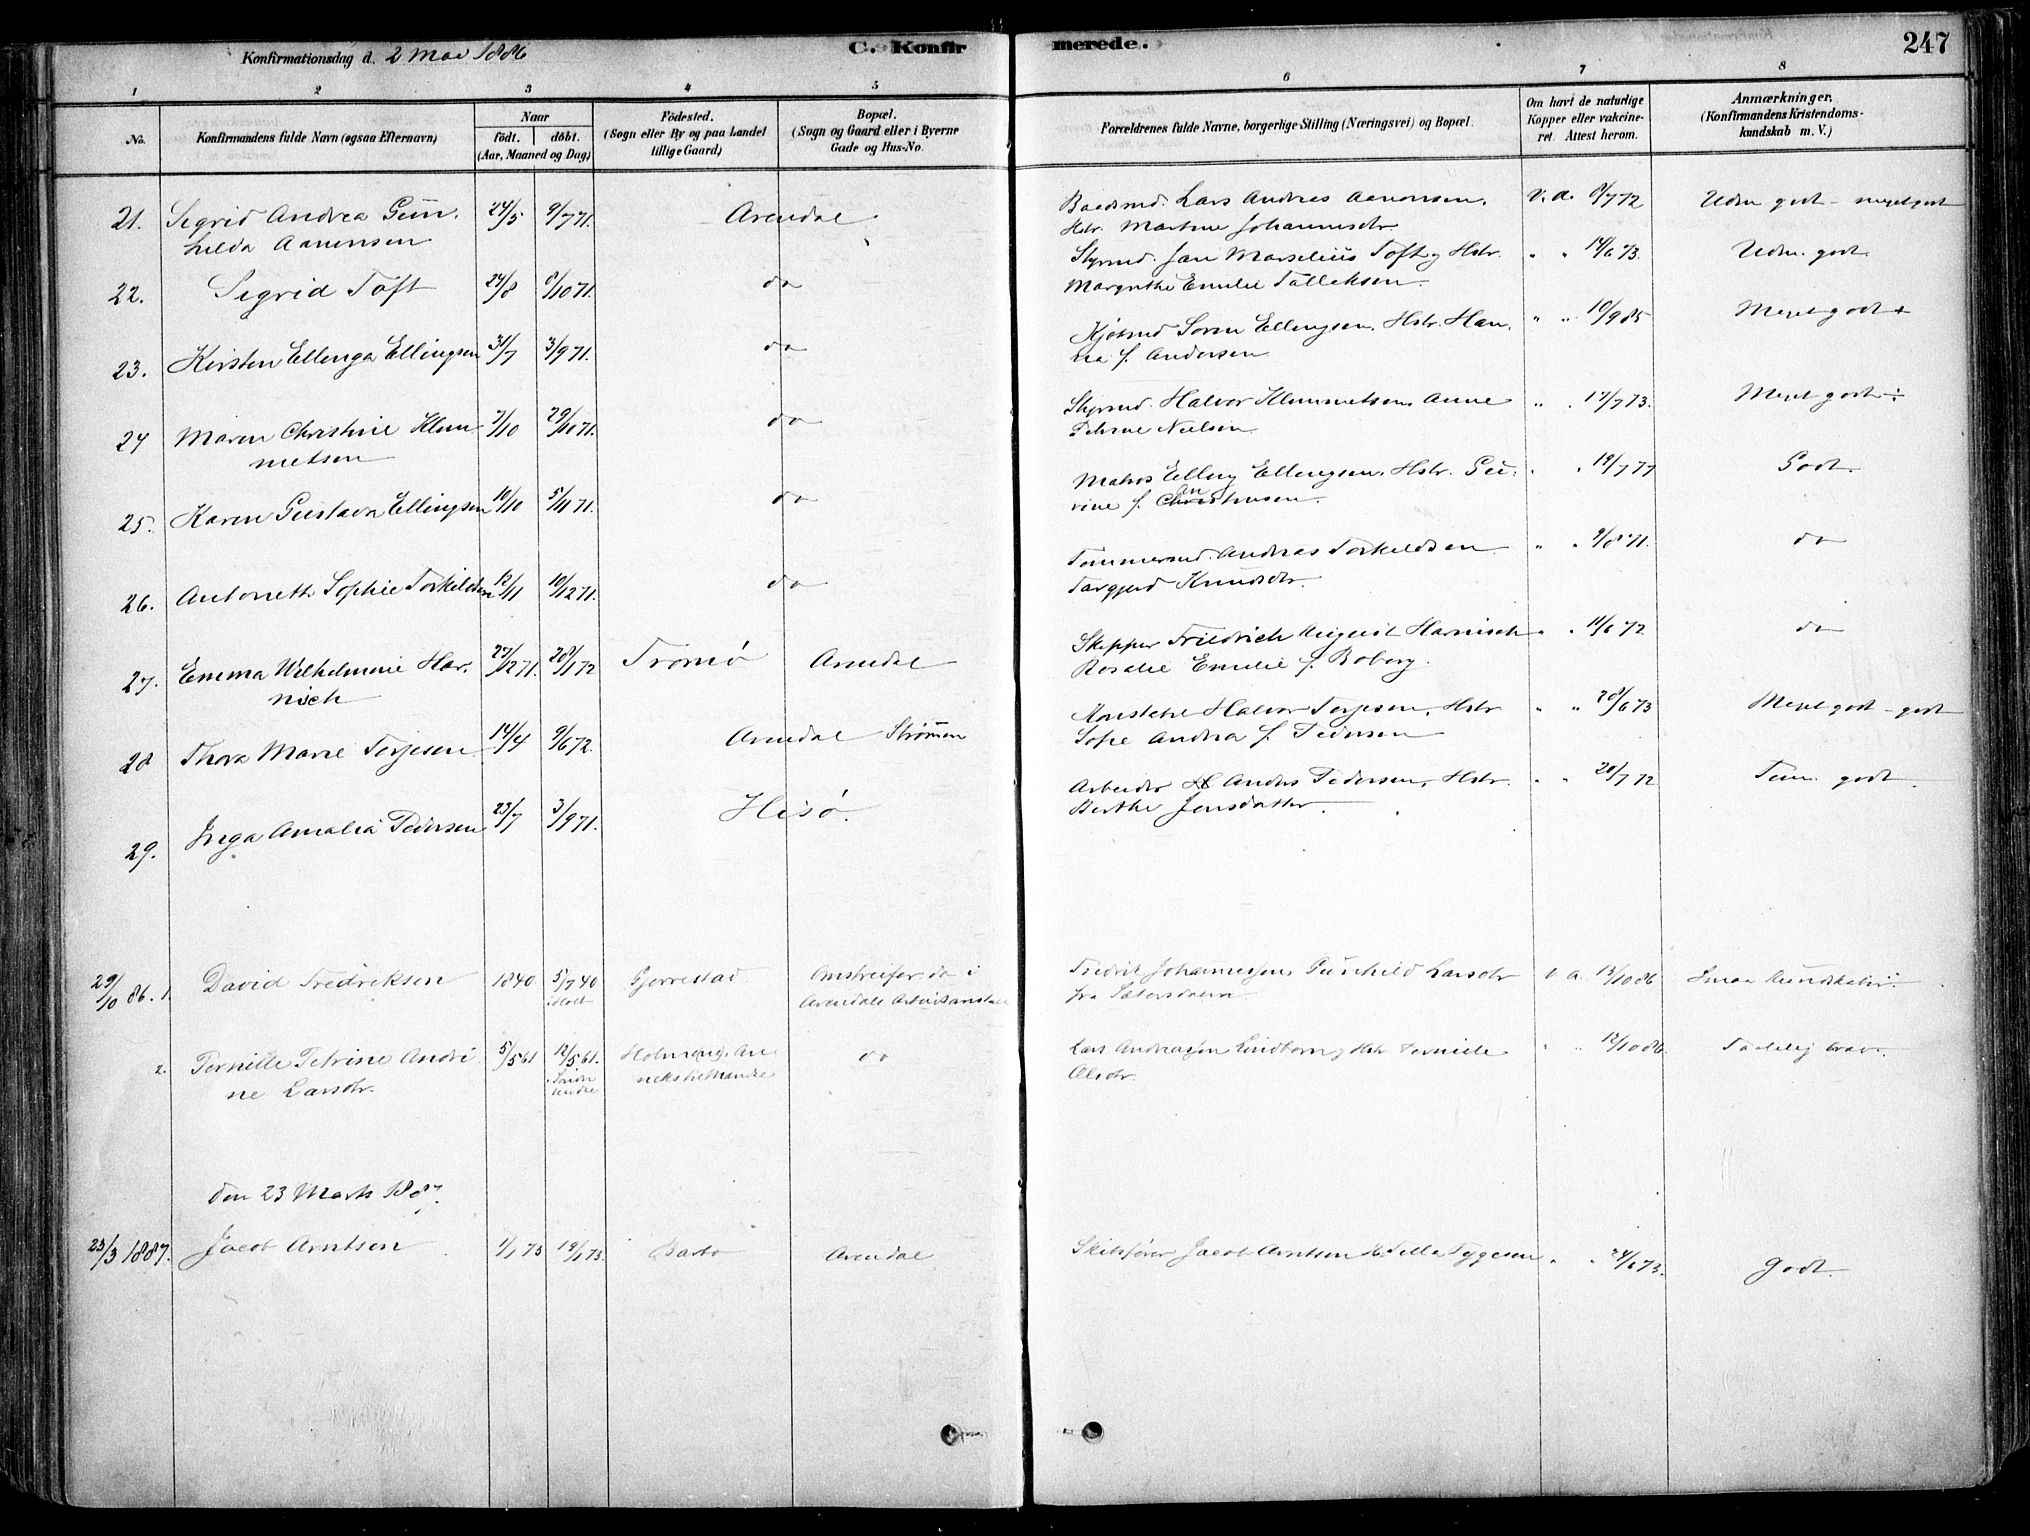 Konfirmationsdag d. 2 Mai 1886
C. Konfirmerede.
247
1 2 3 4 5 6 7 8
No.
Konfirmandens fulde Navn (ogsaa Efternavn)
Naar
födt. döbt.
(Aar, Maaned og Dag)
Födested.
(Sogn eller By og paa Landet
tillige Gaard)
Bopæl.
(Sogn og Gaard eller i Byerne
Gade og Hus-No.
Forældrenes fulde Navne, borgerlige Stilling (Næringsvei) og Bopæl.
Om havt de naturlige
Kopper eller vakcine-
ret. Attest herom.
Anmærkninger,
(Konfirmandens Kristendoms-
kundskab m. V.)
21. Sigrid Andrea Gun- 24/5 9/7 71. Arendal. Baadsmd. Lars Andreas Aanonsen, v. a. 8/7 72 Udm godt - meget godt
hilda Aanonsen Hstr. Martine Johannesdtr.
22. Sigrid Toft 24/8 8/10 71. do Styrmd. Jan Marselius Toft og Hstr. " " 14/6 73. Udm. godt.
Margrethe Emilie Talleksen.
23. Kirsten Ellenga Ellingsen 31/7 3/9 71. do Kjøbmd Søren Ellingsen. Hstr. Han- " " 10/9 85 Meget godt +
na f. Andersen
24 Maren Christine Klem- 7/10 29/10 71. do Styrmd. Halvor Klemmetsen, Anne " " 17/7 73. Meget godt ÷
metsen Petrine Nielsen
25. Karen Gustava Ellingsen 10/10 5/11 71. do Matros Elling Ellingsen, Hstr. Gu- " " 19/7 77 Godt.
rine f. Christensen.
26. Antonette Sophie Torkildsen 12/11 10/12 71. do Tømmermd. Andreas Torkildsen " " 9/8 71. do
Targjerd Knudsdtr.
27. Emma Wilhelmine Har- 27/12 71. 28/1 72 Tromø Arendal Skipper Friedrich August Harnisch " " 11/6 72 do
nisch Rosalie Emilie f. Boberg.
28 Thora Marie Terjesen 14/4 9/6 72. Arendal Strømmen Halvor Terjesen, Hstr " " 28/6 73 Meget godt - godt
Sofie Andrea f. Pedersen
29. Inga Amalia Pedersen 23/7 3/9 71. Hisø. Arbeider Anders Pedersen, Hstr. " " 20/7 72 Tem. godt.
Berthe Jensdatter.
29/10 86. 1. David Fredriksen 1840 5/7 40 Gjerrestad Omstreifer, do i Fredrik Johannessen, Gunhild Larsdtr v a. 13/10 86 Smaa Kundskaber.
Holt Arendals Arbeidsanstalt fra Sætersdalen
2. Pernille Petrine Andri- 5/5 61 12/5 61. Holmeng, An- do Lars Andreasen Lindborn, Hstr Pernille " " 14/10 86.
ne Larsdtr. Søndr neks til Mandal Olsdtr.
undal
den 23 Marts 1887.
23/3 1887. Jacob Arntsen 1/1 73 19/1 73. Barbo Arendal Skibsfører Jacob Arntsen Hstr Tella Tygesen " " 24/6 73. Godt.